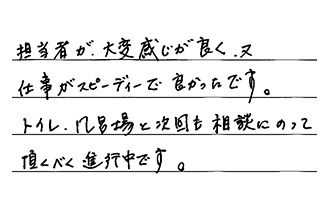 担当者が、大変感じが良く、又
仕事がスピーディーで良かったです。
トイレ、風呂場と次回も相談にのって
頂くべく進行中です。